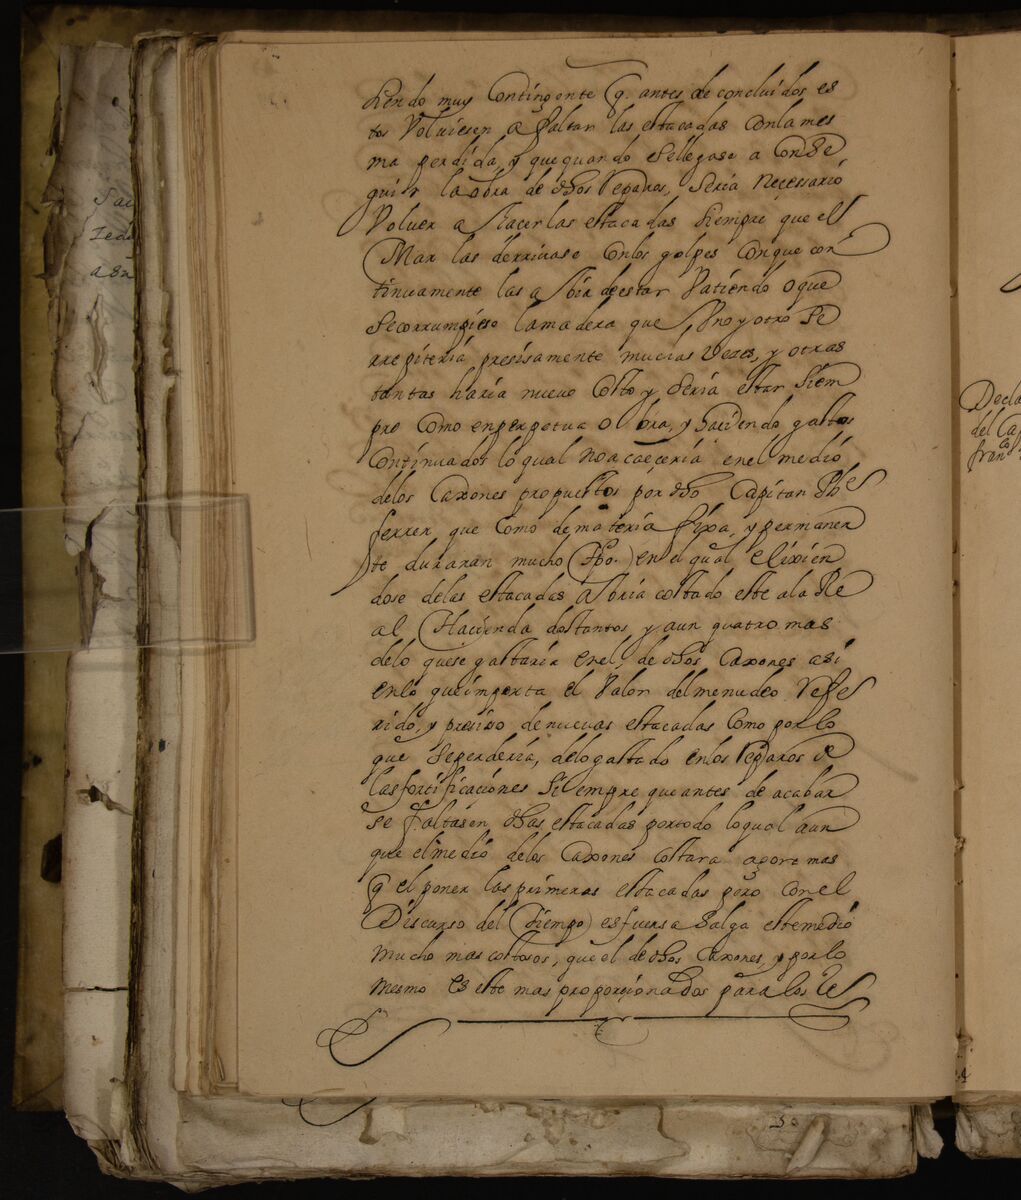 siendo muy Contingente q. antes de concluidos es
tos Volviesen a faltar las estacadas Conlames
ma perdida, y que quando sellegase a Conse
guir la obra de dhos Reparos, seria necessario
Volver a Hacer las estacadas siempre que el
Mar las derrivase Conlos golpes Conque con
tinuamente las a bia deestar Vatiendo o que
secorrumpiese lamadera que Vno y otro se
rrepiteria presisamente muchas Vezes, y otras
tantas haria nuevo Costo y seria estar siem
pre Como enperpetua Obra, y haciendo gastos
Continuados loqual noacaeceria enel medio
delos Caxones propuestos por dho Capitan Phe
ferrer que como demateria fixa, y permanen
te duraran mucho tpo. en el qual elixien
dose delas estacadas abria costado este ala Re
al Hacienda dostantos y aun quatro mas
delo quese gastaria enel, de dhos Caxones asi
enlo queimporta el Valor delmenudeo Refe
rido, y presiso denuevas estacadas Como porlo
que seperderia, delogastado enlos Reparos de
lasfortificaciones siempre queantes de acabar
se faltasen dhas estacadas portodo loqual aun
que elmedio delos Caxones costara agora mas
q el poner las primeras estacadas pero con el
Discurso del tiempo es fuersa salga estemedio
mucho mas costosos, que el de dhos Caxones, y porlo
mesmo es este mas proporcionados para los Re
Decla
del Ca
franco